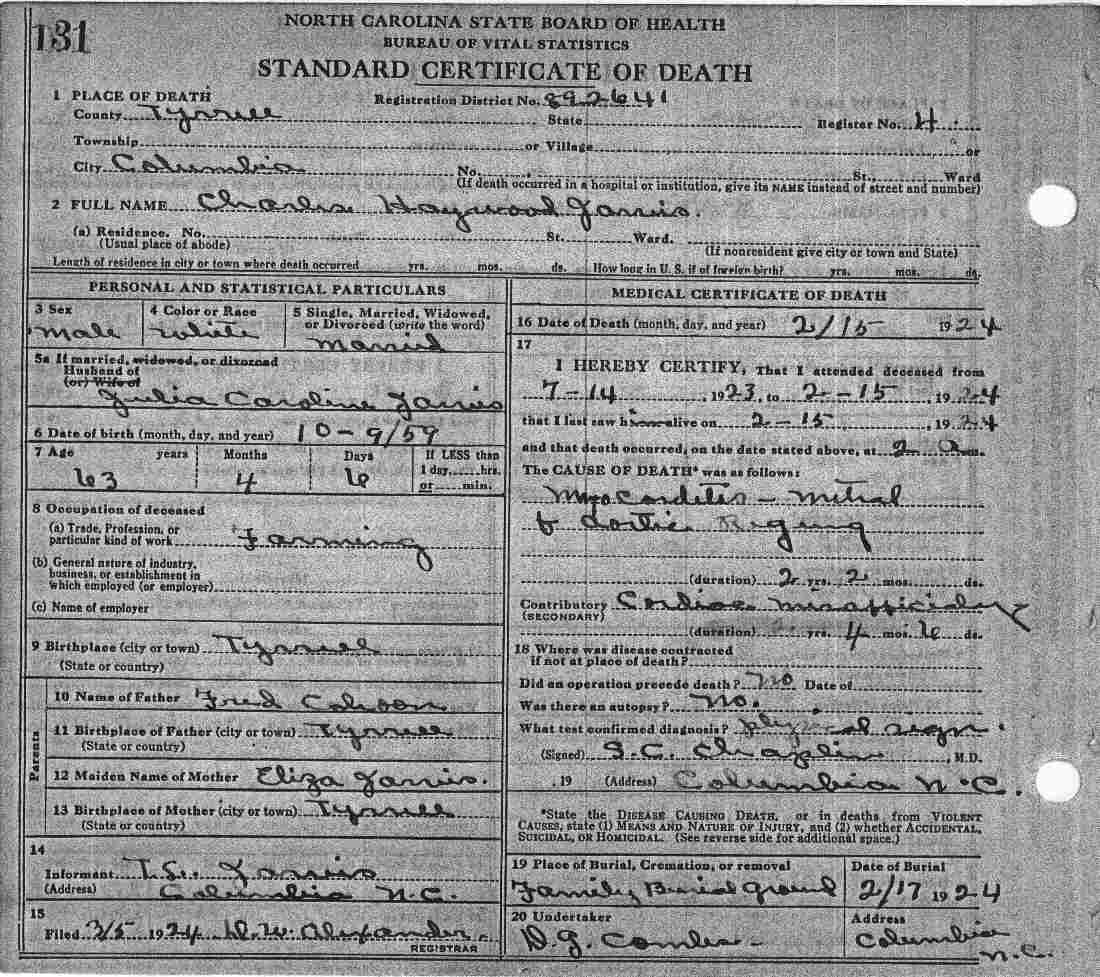 131
NORTH CAROLINA STATE BOARD OF HEALTH
BUREAU OF VITAL STATISTICS
STANDARD CERTIFICATE OF DEATH
1 PLACE OF DEATH Registration District No. 892641
County Tyrrell State Register No. 4
Township or Village or
City Columbia No. St., Ward
(If death occurred in a hospital or institution, give its NAME instead of street and number)
2 FULL NAME Charlie Haywood Jarvis.
(a) Residence. No. St. Ward.
(Usual place of abode) (If nonresident give city or town and State)
Length of residence in city or town where death occurred yrs. mos. ds. How long in U. S. if of foreign birth? yrs. mos. ds.
PERSONAL AND STATISTICAL PARTICULARS
3 Sex 4 Color or Race 5 Single, Married, Widowed, or Divorced (write the word)
Male White Married
5a If married, widowed, or divorced
Husband of
(or) Wife of
Julia Caroline Jarvis
6 Date of birth (month, day, and year) 10-9/59
7 Age years Months Days If LESS than 1 day, hrs. or min.
63 4 6
8 Occupation of deceased
(a) Trade, Profession, or
particular kind of work Farming
(b) General nature of industry,
business, or establishment in
which employed (or employer)
(c) Name of employer
9 Birthplace (city or town) Tyrrell
(State or country)
Parents
10 Name of Father Fred Cahoon
11 Birthplace of Father (city or town) Tyrrell
(State or country)
12 Maiden Name of Mother Eliza Jarvis.
13 Birthplace of Mother (city or town) Tyrrell
(State or country)
14
Informant Jarvis
(Address) Columbia N.C.
15
Filed 3/5 1924 Alexander
REGISTRAR
MEDICAL CERTIFICATE OF DEATH
16 Date of Death (month, day, and year) 2/15 1924
17
I HEREBY CERTIFY, That I attended deceased from
7-14, 1923, to 2-15, 1924
that I last saw him alive on 2-15, 1924
and that death occurred, on the date stated above, at 2 a.m.
The CAUSE OF DEATH* was as follows:
Myocarditis - mitral
& Aortic Regurg
(duration) 2 yrs. 2 mos. ds.
Contributory Cardiac
(SECONDARY)
(duration) yrs. 4 mos. 6 ds.
18 Where was disease contracted
if not at place of death?
Did an operation precede death? no Date of
Was there an autopsy? no.
What test confirmed diagnosis? physical sign
(Signed) S.C. Chaplin, M.D.
, 19 (Address) Columbia N.C.
*State the DISEASE CAUSING DEATH, or in deaths from VIOLENT
CAUSES, state (1) MEANS AND NATURE OF INJURY, and (2) whether ACCIDENTAL,
SUICIDAL, OR HOMICIDAL. (See reverse side for additional space.)
19 Place of Burial, Cremation, or removal Date of Burial
Family Burial Ground 2/17 1924
20 Undertaker Address
D.G. Combs - Columbia
N.C.